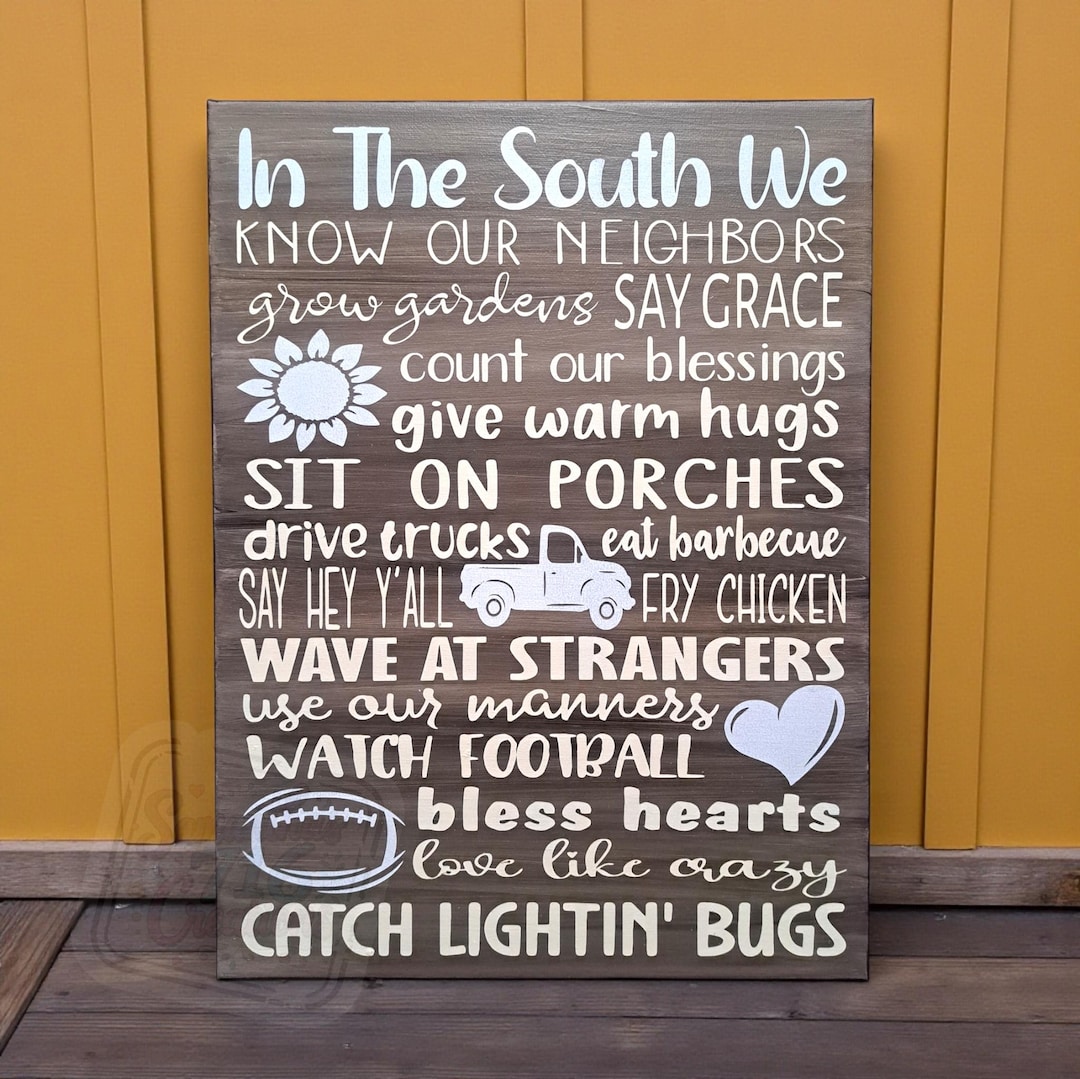 In The South We
KNOW OUR NEIGHBORS
grow gardens SAY GRACE
count our blessings
give warm hugs
SIT ON PORCHES
drive trucks eat barbecue
SAY HEY Y'ALL FRY CHICKEN
WAVE AT STRANGERS
use our manners
WATCH FOOTBALL
bless hearts
love like crazy
CATCH LIGHTIN' BUGS